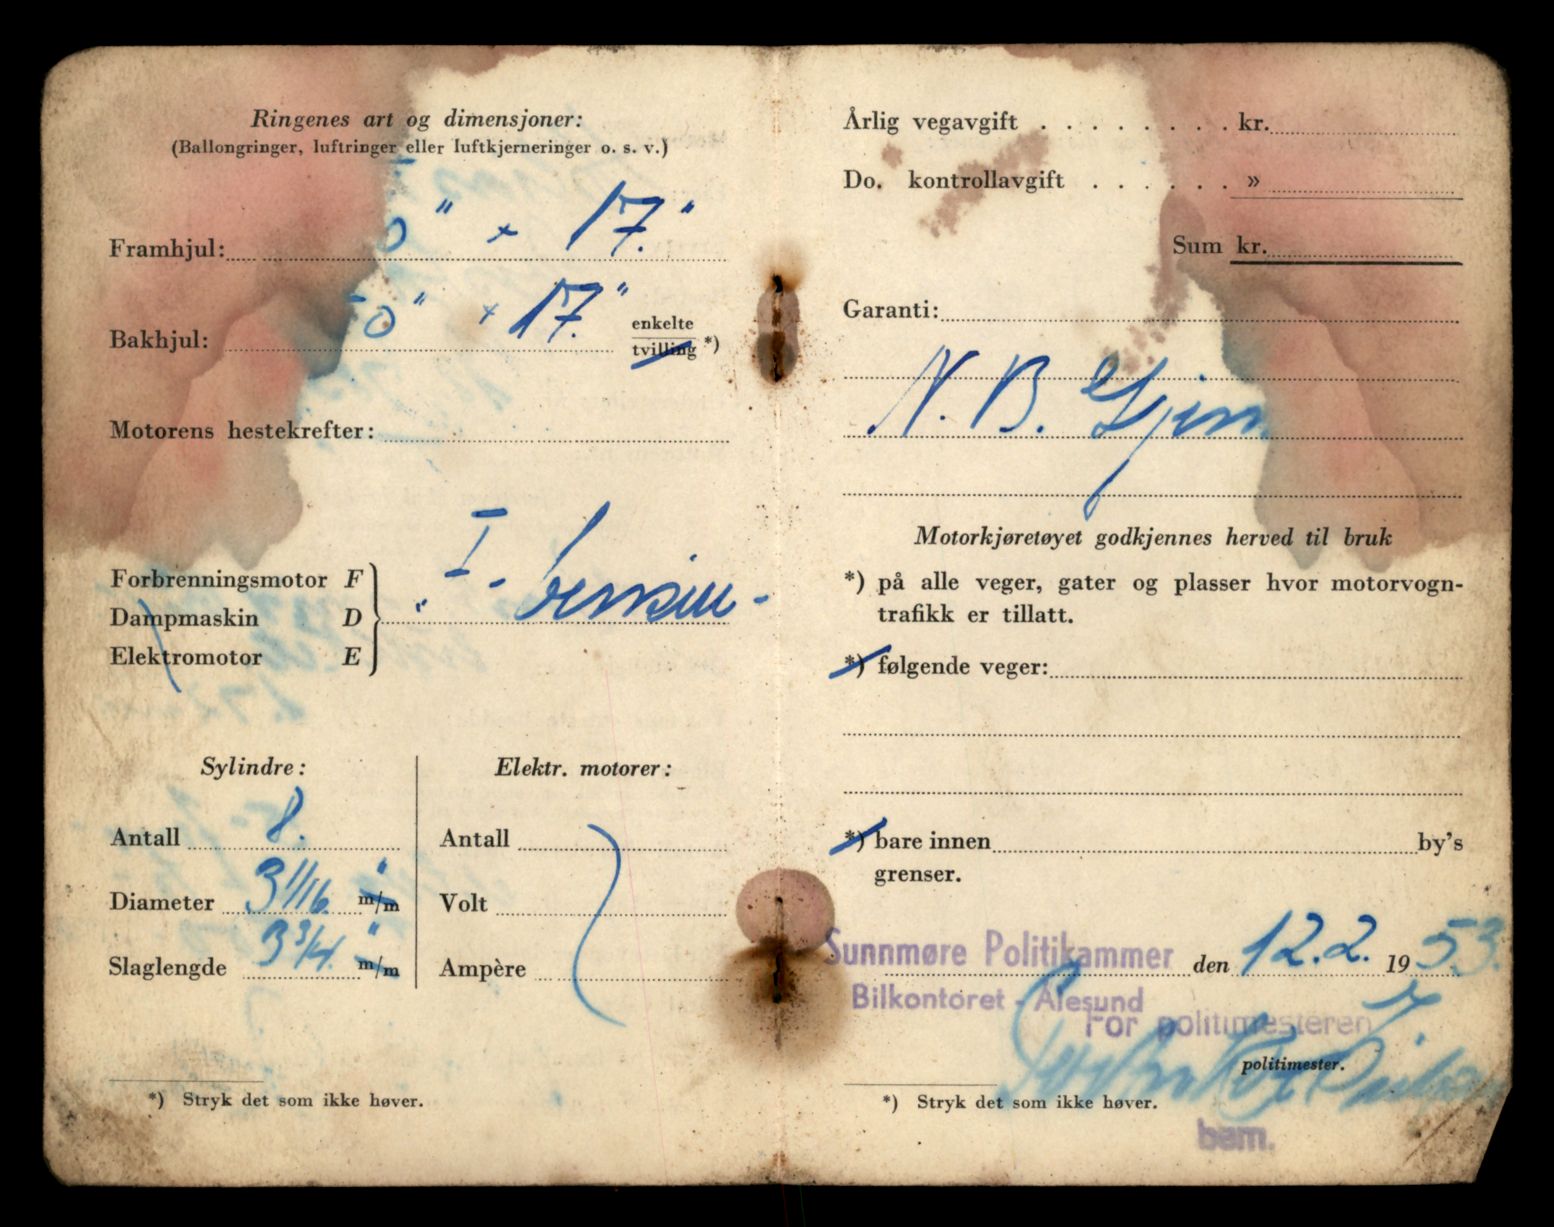 Ringenes art og dimensjoner:
(Ballongringer, luftringer eller luftkjerneringer o. s. v.)
Framhjul: 0" × 17."
Bakhjul: 50" × 17." enkelte
tvilling *)
Motorens hestekrefter:
Forbrenningsmotor F
Dampmaskin D
Elektromotor E
"I" - bensin -
Sylindre:
Antall 8.
Diameter 3 1/16 " m/m
Slaglengde 3 3/4 " m/m
Elektr. motorer:
Antall
Volt
Ampère
*) Stryk det som ikke høver.
Årlig vegavgift . . . . . . . . kr.
Do. kontrollavgift . . . . . . »
Sum kr.
Garanti:
N. B.
Motorkjøretøyet godkjennes herved til bruk
*) på alle veger, gater og plasser hvor motorvogn-
trafikk er tillatt.
*) følgende veger:
*) bare innen by's
grenser.
Sunnmøre Politikammer den 12.2. 1953.
Bilkontoret - Ålesund
For politimesteren
politimester.
*) Stryk det som ikke høver.
bem.